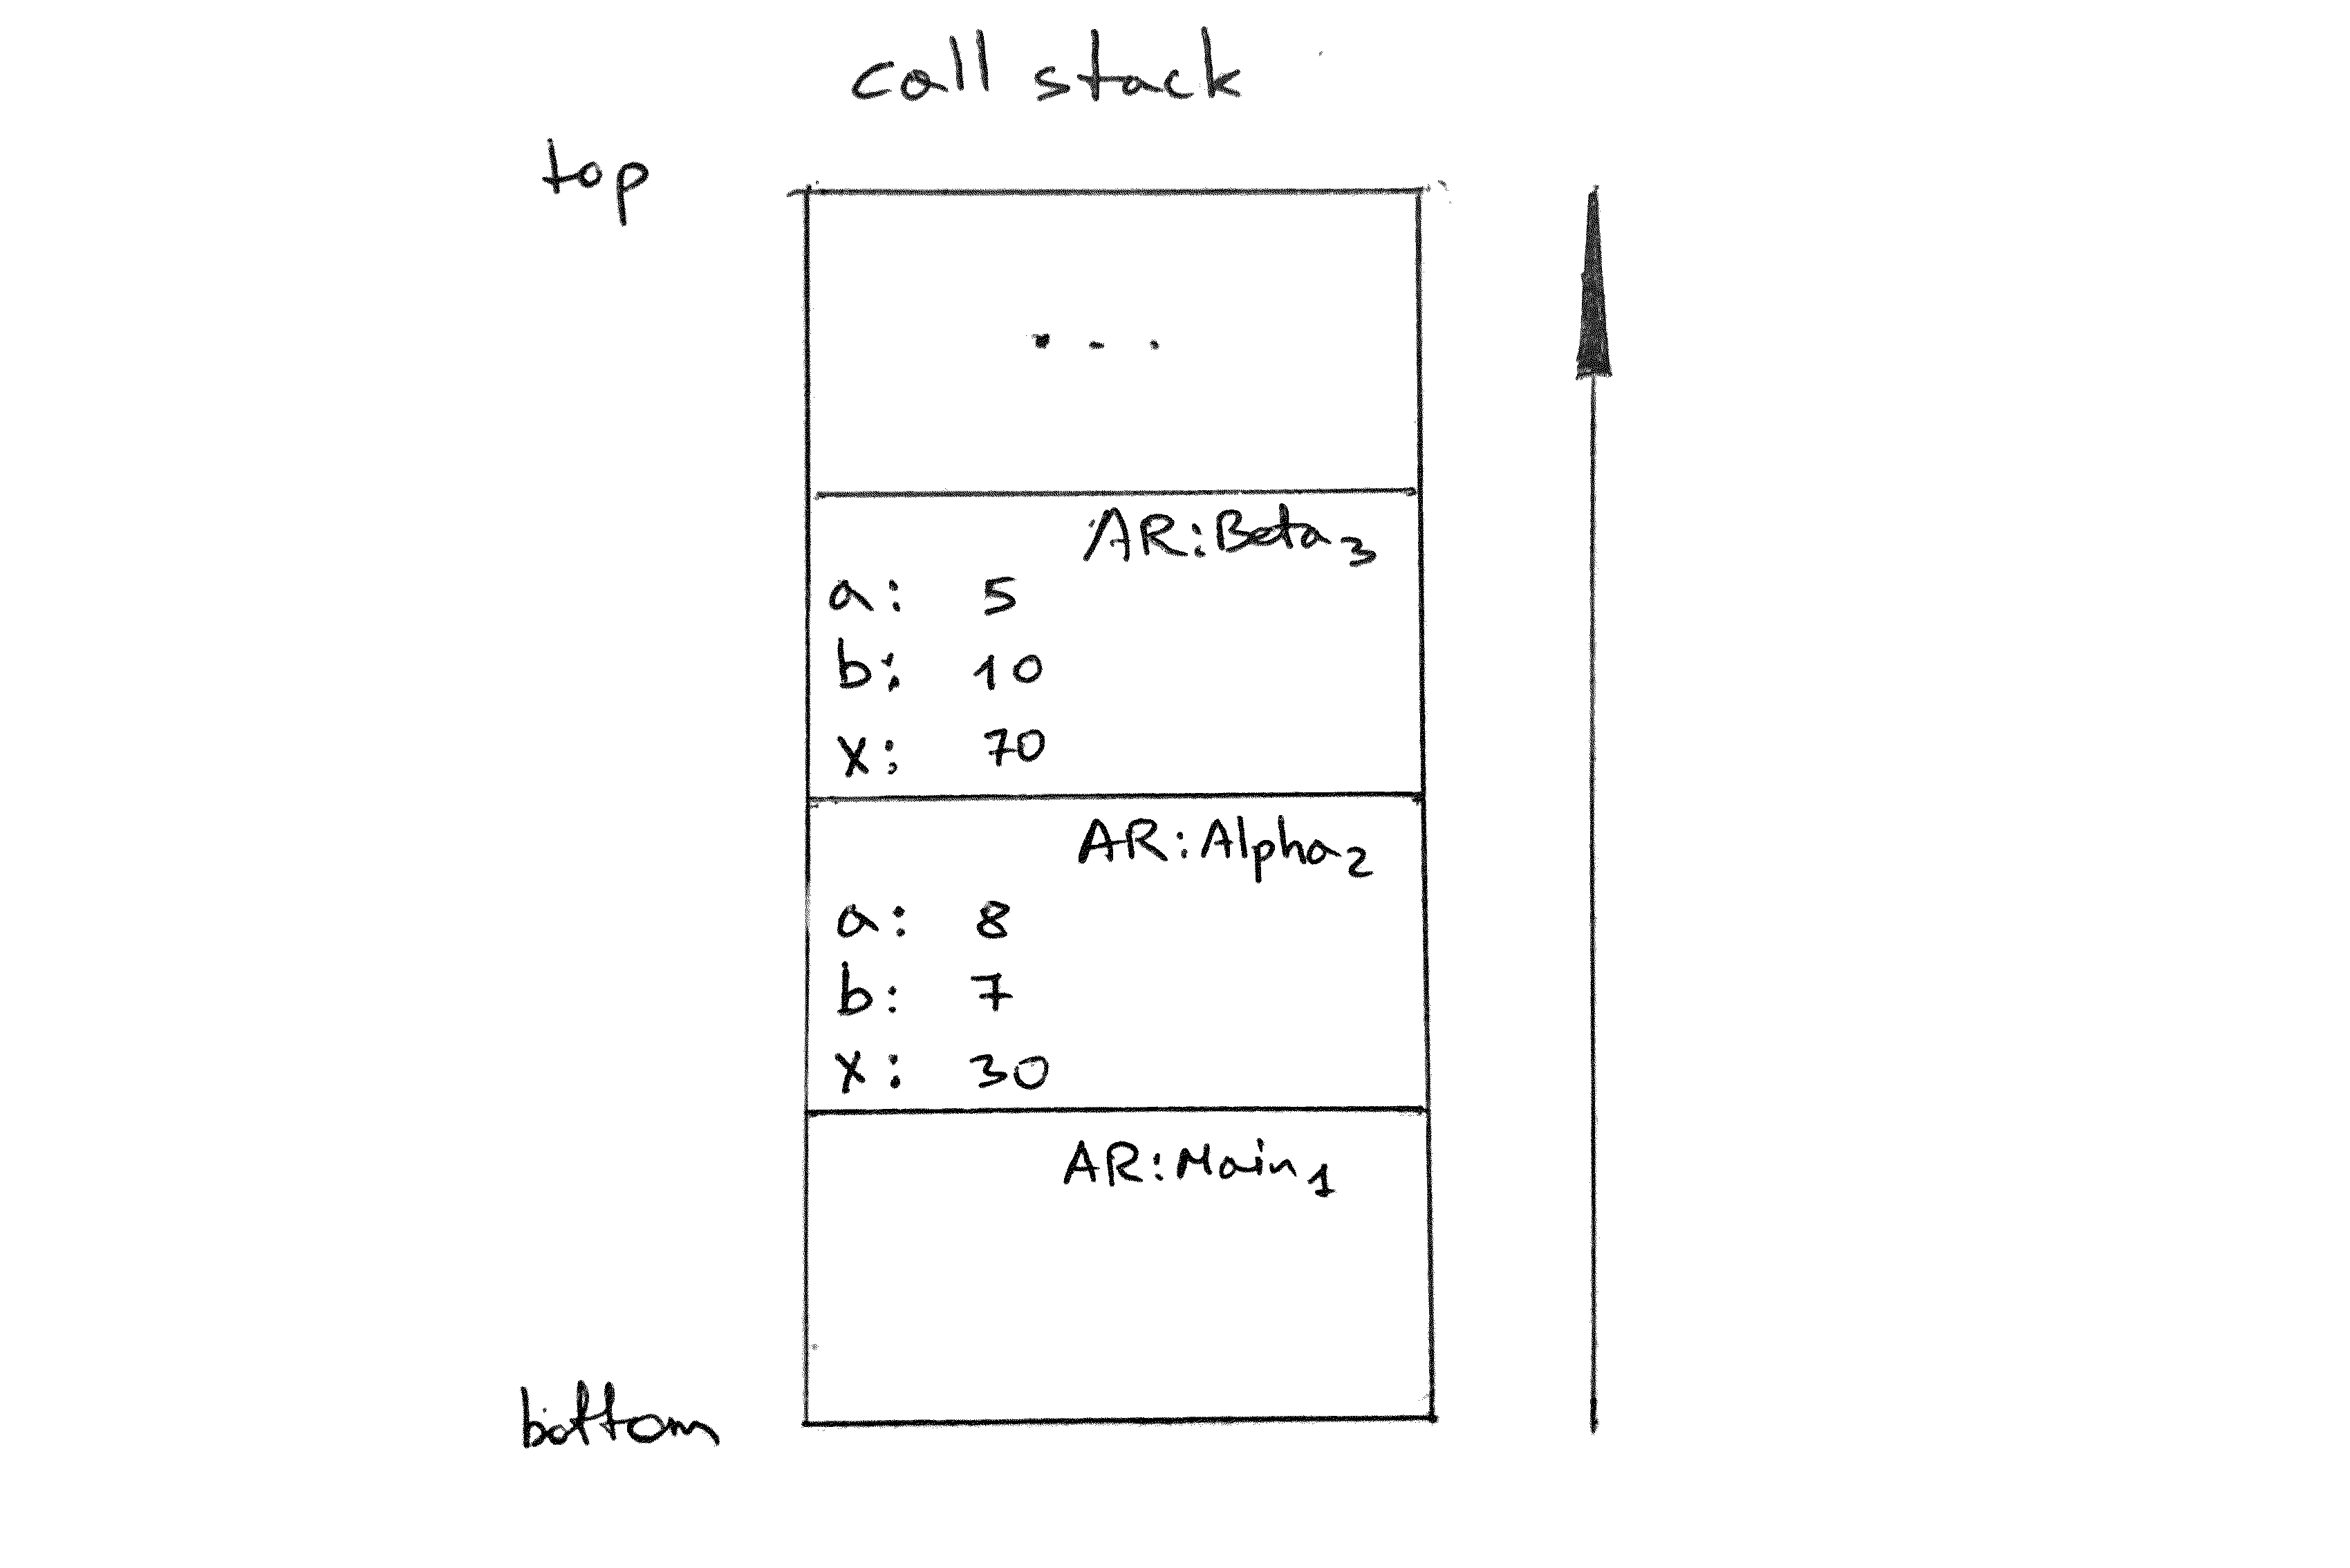 call stack
top
. . .
AR:Beta₃
a: 5
b: 10
x: 70
AR:Alpha₂
a: 8
b: 7
x: 30
AR:Main₁
bottom